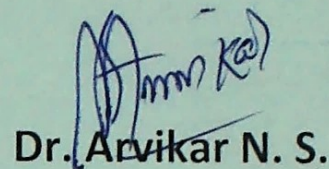 Dr. Arvikar N. S.